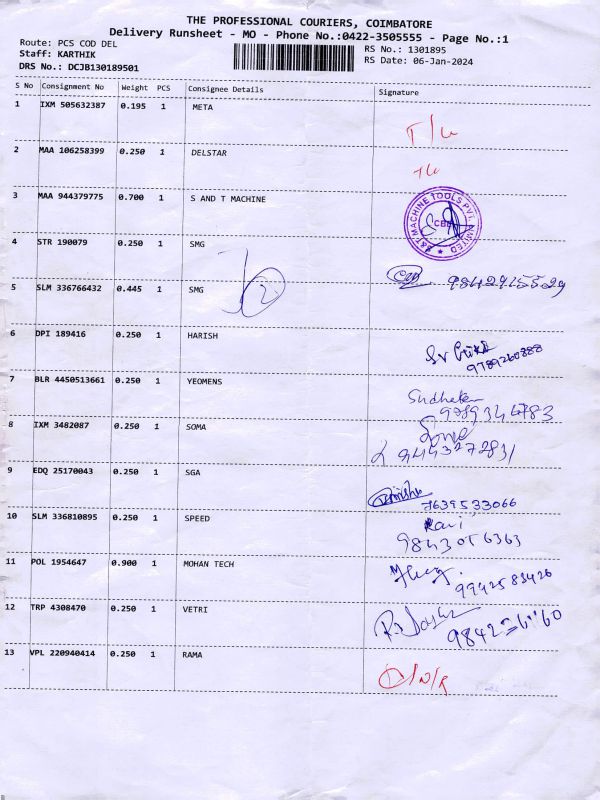 THE PROFESSIONAL COURIERS, COIMBATORE
Delivery Runsheet - MO - Phone No.:0422-3505555 - Page No.:1
Route: PCS COD DEL
RS No.: 1301895
Staff: KARTHIK
RS Date: 06-Jan-2024
DRS No.: DCJB130189501
S No Consignment No Weight PCS Consignee Details Signature
1 IXM 505632387 0.195 1 META
T/L
2 MAA 106258399 0.250 1 DELSTAR
TL
3 MAA 944379775 0.700 1 S AND T MACHINE
S&T MACHINE TOOLS PVT. LIMITED
CBE
4 STR 190079 0.250 1 SMG
9842915529
5 SLM 336766432 0.445 1 SMG
6 DPI 189416 0.250 1 HARISH
9789260888
7 BLR 4450513661 0.250 1 YEOMENS
Sudhakar
9789344783
8 IXM 3482087 0.250 1 SOMA
9443272831
9 EDQ 25170043 0.250 1 SGA
7639533066
10 SLM 336810895 0.250 1 SPEED
Ravi
9843056363
11 POL 1954647 0.900 1 MOHAN TECH
9942583426
12 TRP 4308470 0.250 1 VETRI
13 VPL 220940414 0.250 1 RAMA
D/N/R